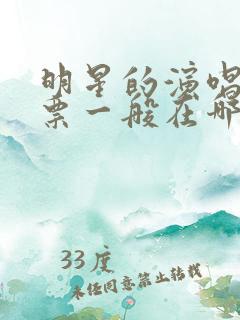 明星的演唱
票一般在哪
33度
未经同意禁止转载